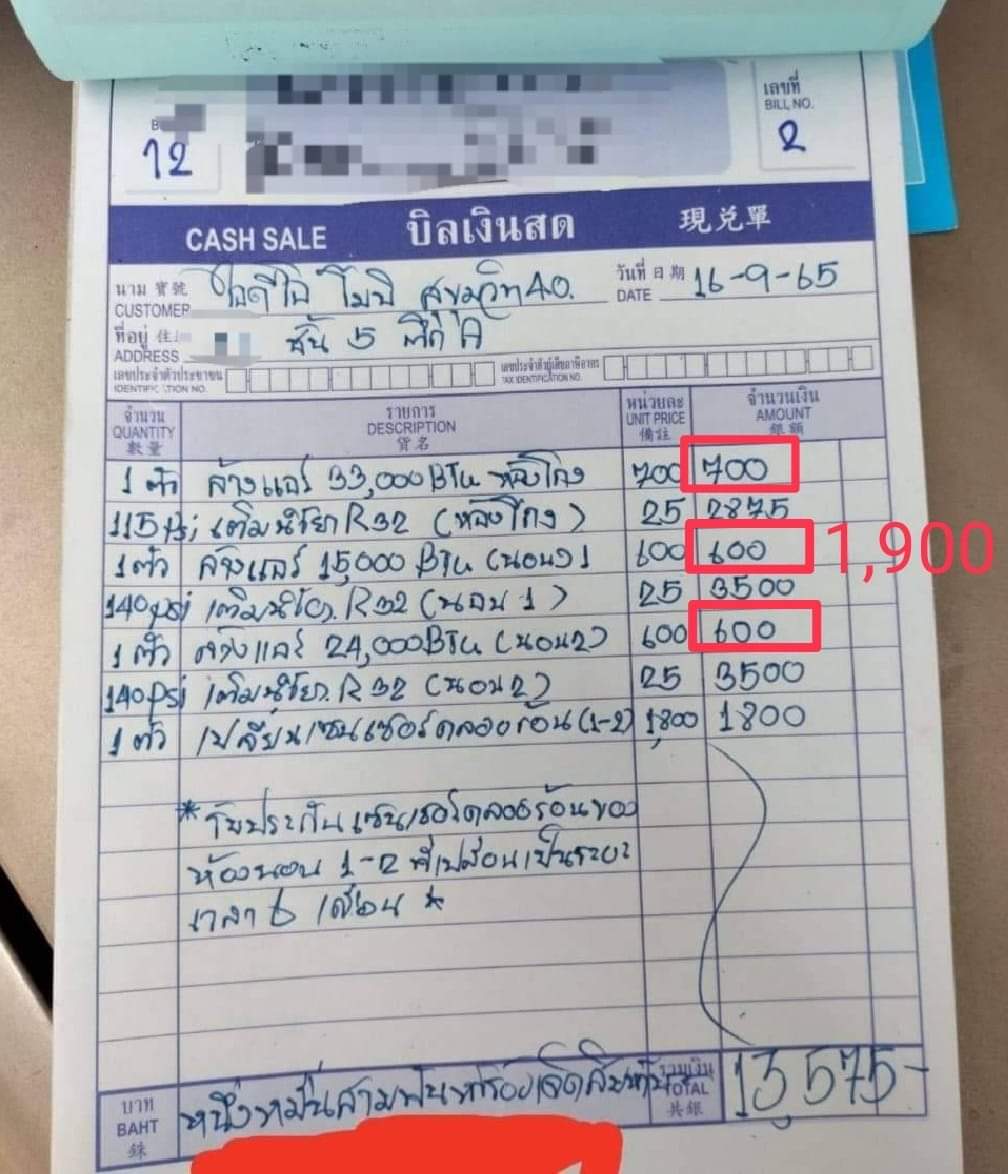 เลขที่
BILL NO.
12
2
CASH SALE บิลเงินสด 現兑單
นาม 寶號
CUSTOMER ไอดีโอ โมบิ สุขุมวิท 40.
วันที่ 日期
DATE 16-9-65
ที่อยู่
ADDRESS ชั้น 5 ตึก A
เลขประจำตัวประชาชน
เลขประจำตัวผู้เสียภาษีอากร
TAX IDENTIFICATION NO.
จำนวน รายการ หน่วยละ จำนวนเงิน
QUANTITY DESCRIPTION UNIT PRICE AMOUNT
數量 貨名 備註 銀額
1 ตัว ล้างแอร์ 33,000 BTU ห้องโถง 700 700
115 Psi เติมน้ำยา R32 (ห้องโถง) 25 2875
1 ตัว ล้างแอร์ 15,000 BTU (นอน 1 600 600 1,900
140 psi เติมน้ำยา R32 (นอน 1) 25 3500
1 ตัว ล้างแอร์ 24,000 BTU (นอน2) 600 600
140 psi เติมน้ำยา R32 (นอน2) 25 3500
1 ตัว เปลี่ยนเซนเซอร์คลอยร้อน (1-2) 1,800 1800
* รับประกันเซนเซอร์คลอยร้อนของ
ห้องนอน 1-2 ที่เปลี่ยนเป็นระยะ
เวลา 6 เดือน *
บาท
BAHT
銖
หนึ่งหมื่นสามพันห้าร้อยเจ็ดสิบห้า
รวมเงิน
TOTAL
共銀
13,575-